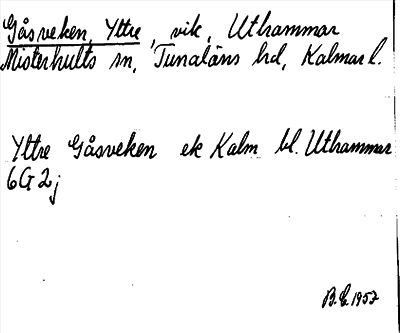 Gåsveken, Yttre, vik, Uthammar
Misterhults sn, Tunaläns hd, Kalmar l.
Yttre Gåsveken ek Kalm bl. Uthammar
6G2j
B.E. 1957